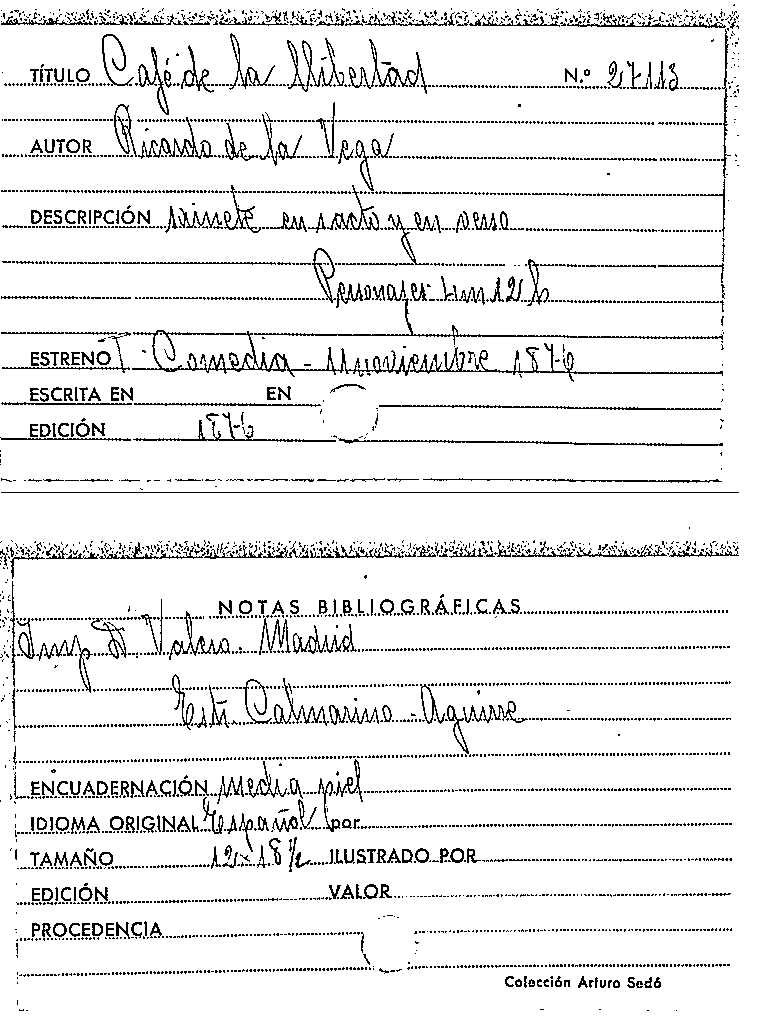 TÍTULO Café de la llibertad N.º 27113
AUTOR Ricardo de la Vega
DESCRIPCIÓN sainete en 1 acto y en verso
Personajes 4 m 12 h
ESTRENO T. Comedia - 11 noviembre 1876
ESCRITA EN EN
EDICIÓN 1876
NOTAS BIBLIOGRÁFICAS
Imp Valero. Madrid
Estr. Calmarino - Aguirre
ENCUADERNACIÓN media piel
IDIOMA ORIGINAL Español por
TAMAÑO 12 x 18 ½ ILUSTRADO POR
EDICIÓN VALOR
PROCEDENCIA
Colección Arturo Sedó